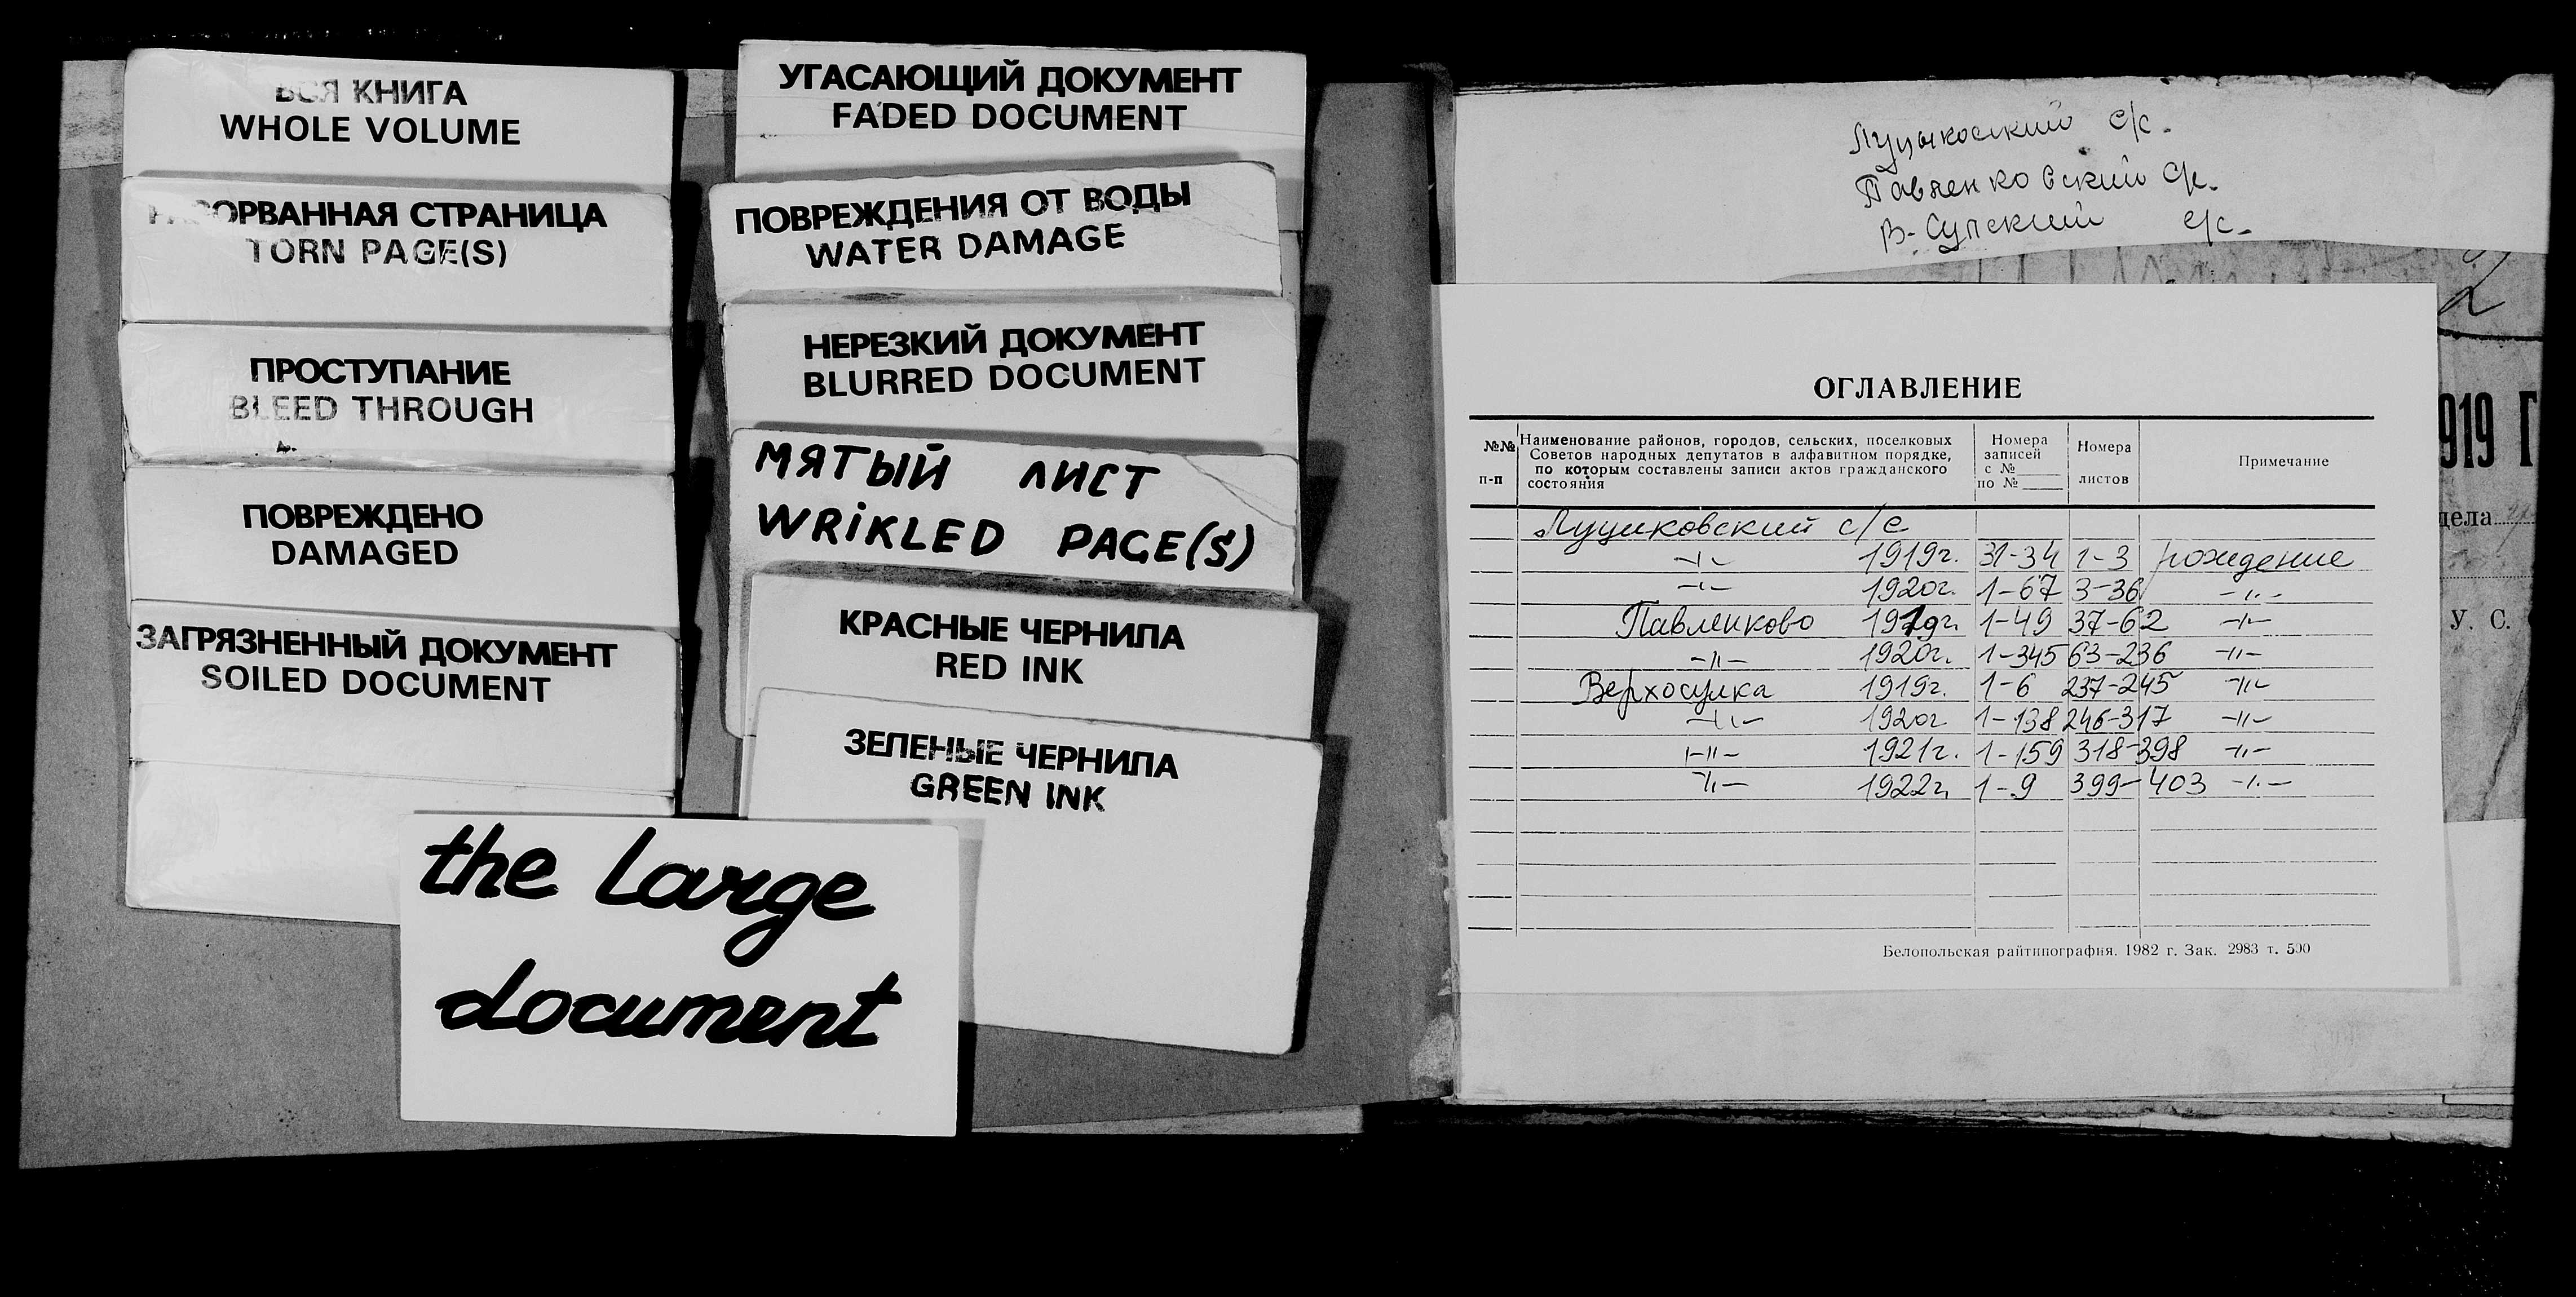 ВСЯ КНИГА
WHOLE VOLUME
РАЗОРВАННАЯ СТРАНИЦА
TORN PAGE(S)
ПРОСТУПАНИЕ
BLEED THROUGH
ПОВРЕЖДЕНО
DAMAGED
ЗАГРЯЗНЕННЫЙ ДОКУМЕНТ
SOILED DOCUMENT
УГАСАЮЩИЙ ДОКУМЕНТ
FADED DOCUMENT
ПОВРЕЖДЕНИЯ ОТ ВОДЫ
WATER DAMAGE
НЕРЕЗКИЙ ДОКУМЕНТ
BLURRED DOCUMENT
МЯТЫЙ ЛИСТ
WRiKLED PAGE(S)
КРАСНЫЕ ЧЕРНИЛА
RED INK
ЗЕЛЕНЫЕ ЧЕРНИЛА
GREEN INK
the large
document
Луцыковский с/с.
Павленковский с/с.
В-Сулский с/с.
ОГЛАВЛЕНИЕ
№№ п-п
Наименование районов, городов, сельских, поселковых
Советов народных депутатов в алфавитном порядке,
по которым составлены записи актов гражданского
состояния
Номера
записей
с №
по №
Номера
листов
Примечание
Луциковский с/с
-"- 1919г. 31-34 1-3 рождение
-"- 1920г. 1-67 3-36 -"-
Павленково 1919г. 1-49 37-62 -"-
-"- 1920г. 1-345 63-236 -"-
Верхосулка 1919г. 1-6 237-245 -"-
-"- 1920г 1-138 246-317 -"-
-"- 1921г. 1-159 318-398 -"-
-"- 1922г. 1-9 399-403 -"-
Белопольская райтипография. 1982 г. Зак. 2983 т. 500
919 Г
дела
У. С.